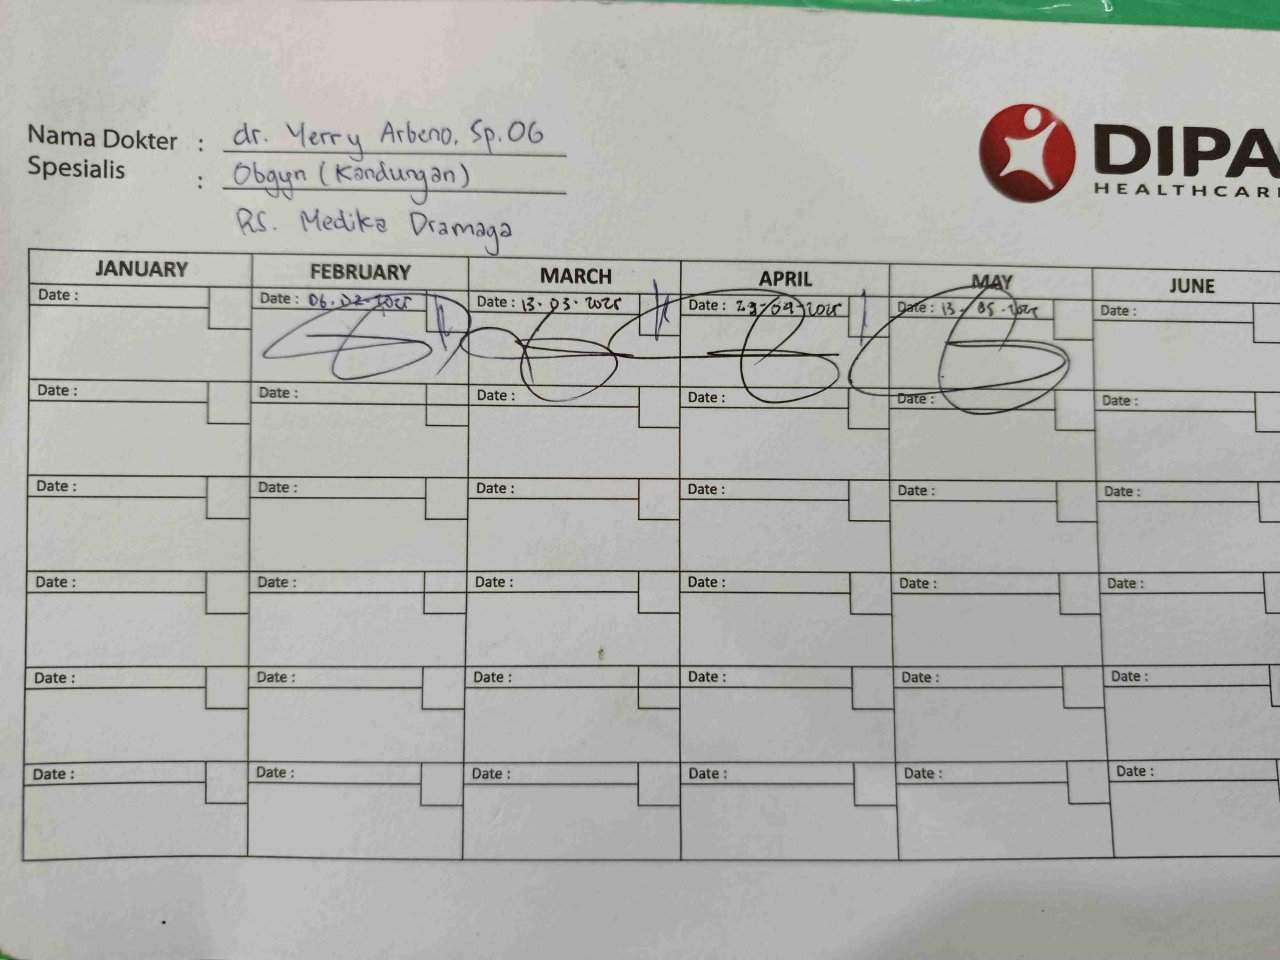 Nama Dokter : dr. Yerry Arbeno, Sp.OG
Spesialis : Obgyn (Kandungan)
RS. Medika Dramaga
DIPA
HEALTHCAR
JANUARY FEBRUARY MARCH APRIL MAY JUNE
Date : Date : 06.02.2025 Date : 13.03.2025 Date : 29-04-2025 Date : 13.05.2025 Date :
Date : Date : Date : Date : Date : Date :
Date : Date : Date : Date : Date : Date :
Date : Date : Date : Date : Date : Date :
Date : Date : Date : Date : Date : Date :
Date : Date : Date : Date : Date : Date :